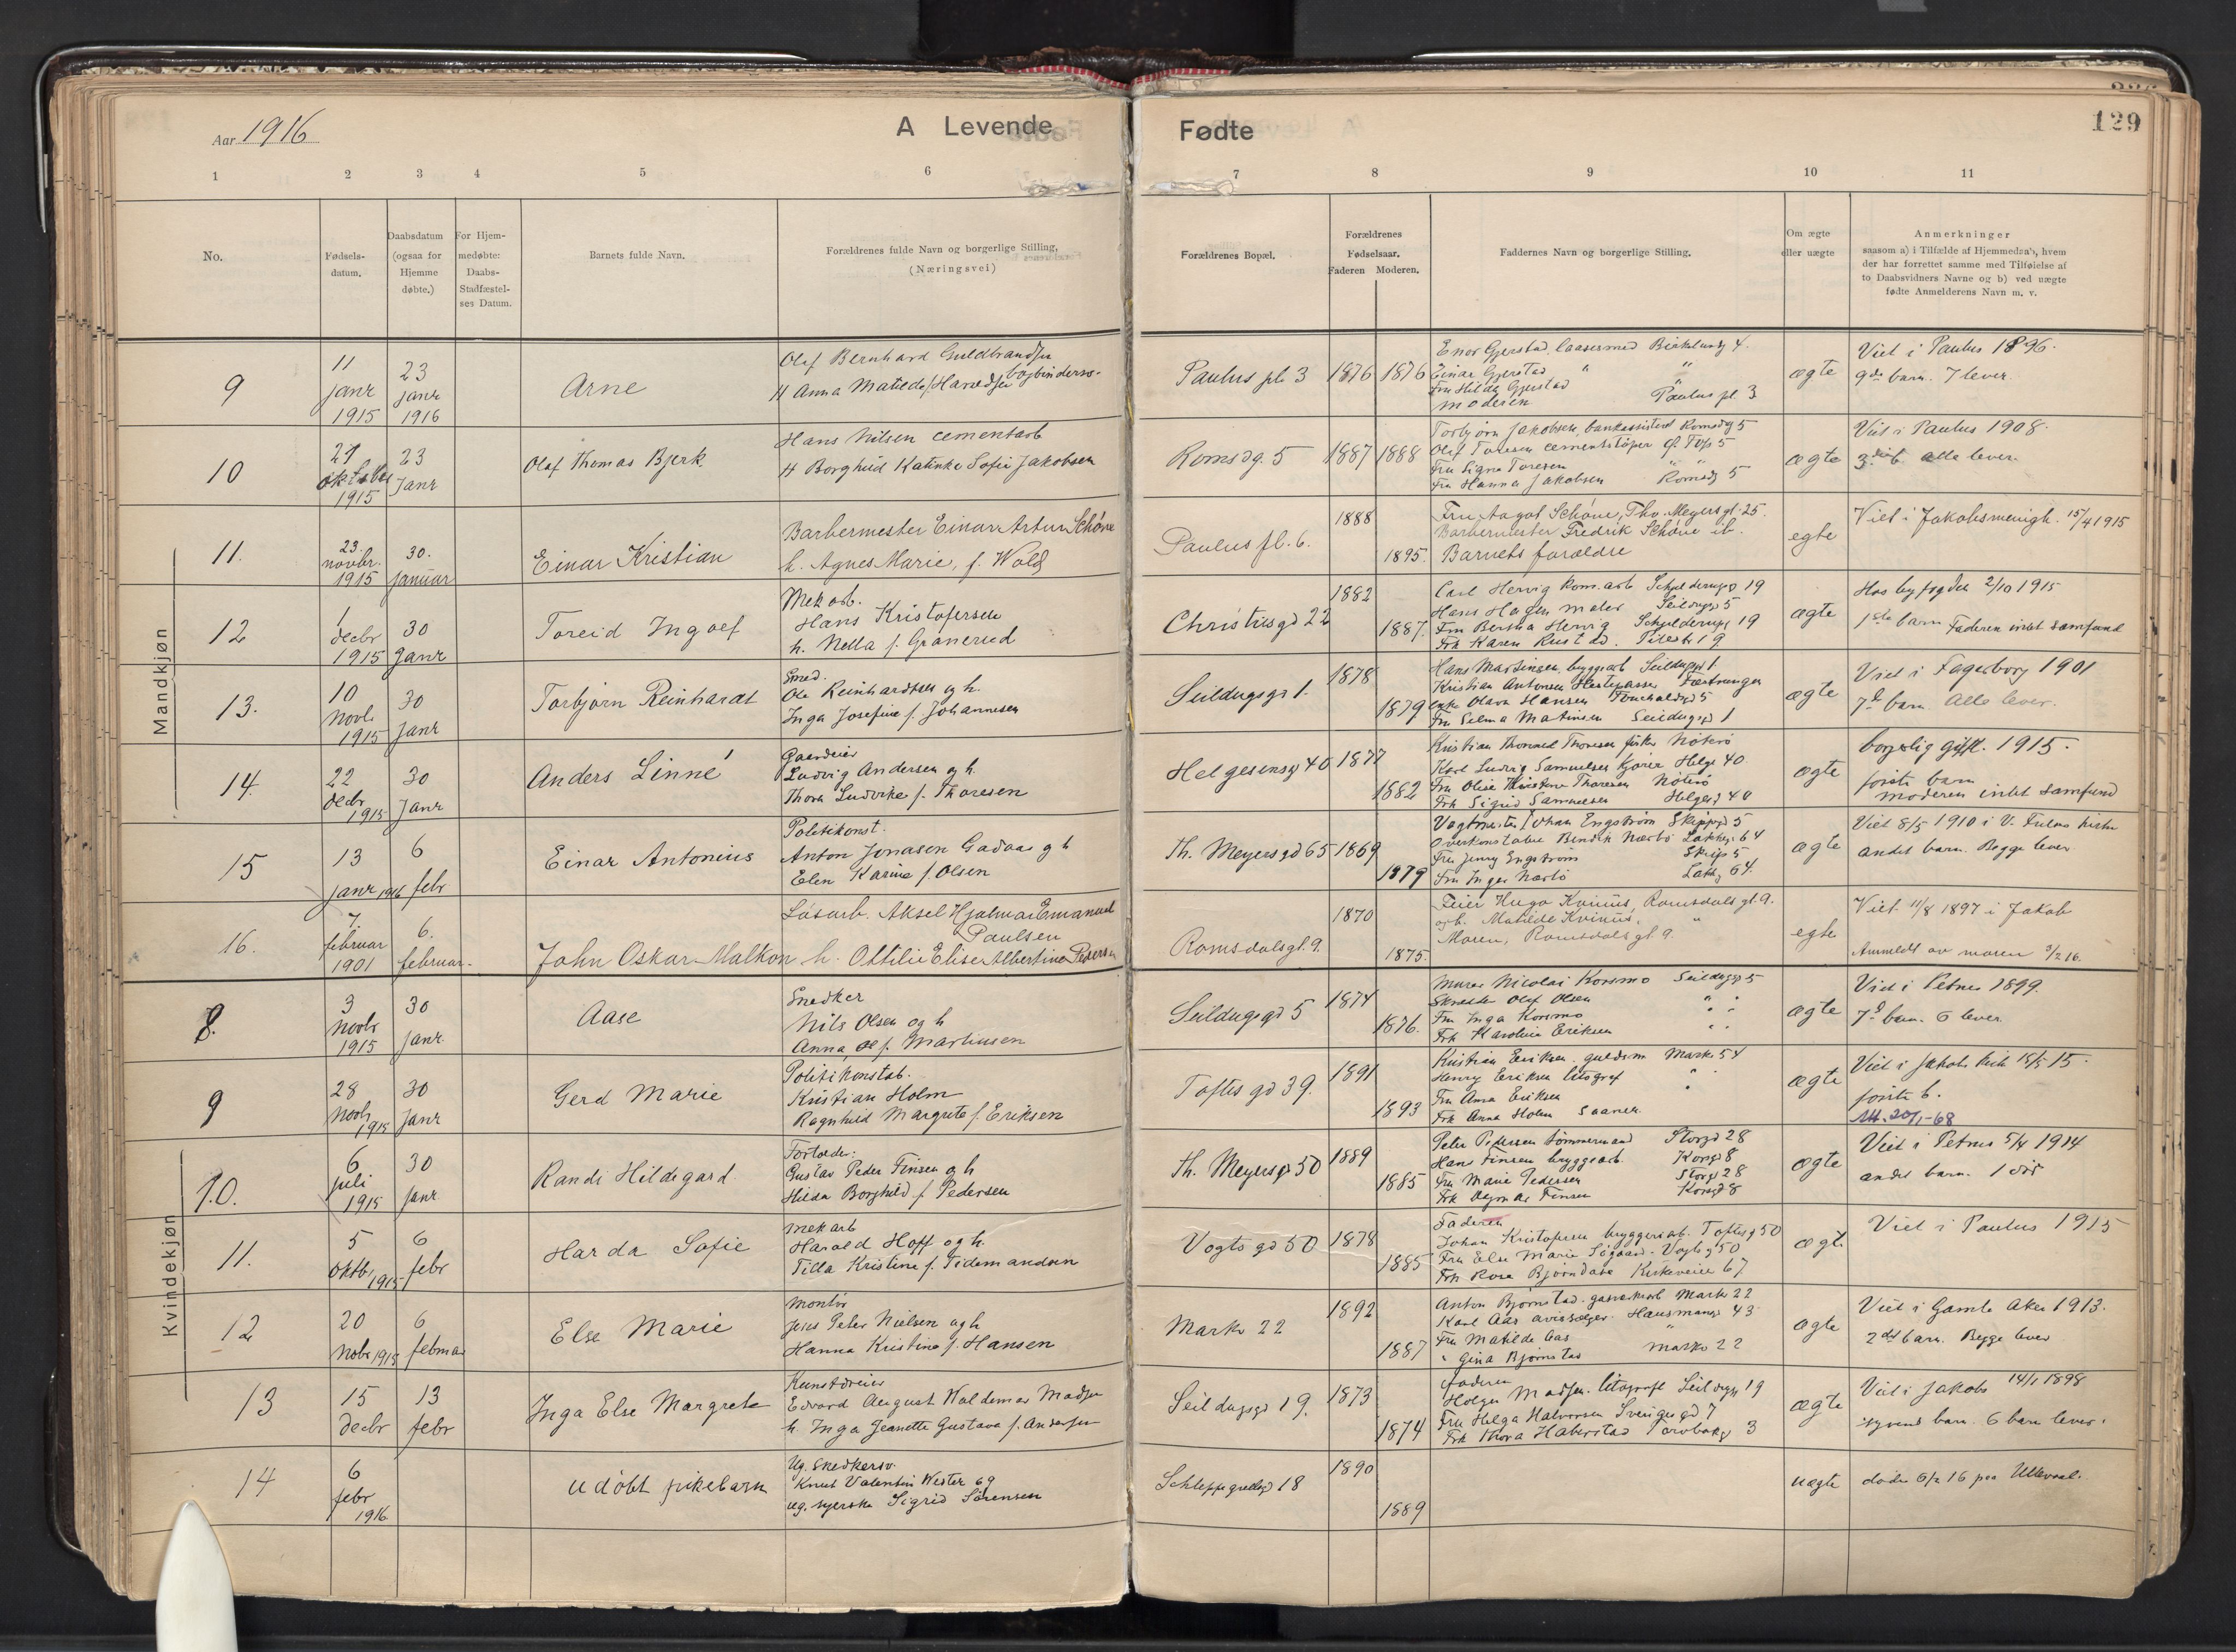 Aar 1916
A Levende
Fødte
129
1 2 3 4 5 6 7 8 9 10 11
No.
Fødsels-
datum.
Daabsdatum
(ogsaa for
Hjemme
døbte.)
For Hjem-
medøbte:
Daabs-
Stadfæstel-
ses Datum.
Barnets fulde Navn.
Forældrenes fulde Navn og borgerlige Stilling,
(Næringsvei)
Forældrenes Bopæl.
Forældrenes
Fødselsaar.
Faderen Moderen.
Faddernes Navn og borgerlige Stilling.
Om ægte
eller uægte
Anmerkninger
saasom a) i Tilfælde af Hjemmedaab, hvem
der har forrettet samme med Tilføielse af
to Daabsvidners Navne og b) ved uægte
fødte Anmelderens Navn m. v.
Mandkjøn
9
11
janr
1915
23
janr
1916
Arne
Olaf Bernhard Guldbrandsen
bogbindersv.
H Anna Matilde f. Haraldsen
Paulus pl 3
1876 1876
Enor Gjerstad, laasesmed Birkelundg 4.
Einar Gjerstad " "
Fru Hilda Gjerstad "
Moderen Paulus pl 3
ægte
Viet i Paulus 1896.
9de barn. 7 lever.
10
27
oktober
1915
23
Janr
Olaf Thomas Bjerk.
Hans Nilsen cementarb
H Borghild Katinka Sofie Jakobsen
Romsdg. 5
1887 1888
Torbjørn Jakobsen, bankassistent Romsdg 5
Olaf Toresen cementstøper
Fru Signe Toresen " "
Fru Hanna Jakobsen Romsdg 5
ægte
Viet i Paulus 1908.
3die b. alle lever.
11.
23.
novbr.
1915
30.
januar
Einar Kristian
Barbermester Einar Artur Schøne
h. Agnes Marie, f. Wold
Paulus pl. 6.
1888
1895.
Fru Aagot Schøne, Thv. Meyers gt. 25.
Barbermester Fredrik Schøne ib.
Barnets forældre
egte
Viet i Jakobsmenigh. 15/4 1915
12
1
decbr
1915
30
Janr
Toreid Ingolf
Mek arb.
Hans Kristofersen
h. Nella f. Granerud
Christiesgd 22
1882
1887.
Carl Hervig kom.arb Schjelderupsg 19
Hans Hagen maler Seildugsg 5
Fru Bertha Hervig Schjelderupsg 19
Frk Karen Rustad. Pilestr 19
ægte
Hos byfogden 2/10 1915
1ste barn Faderen intet samfund
13.
10
Novbr
1915
30
Janr
Torbjørn Reinhardt
Smed.
Ole Reinhardtsen og h.
Inga Josefine f. Johannesen
Seildugsgd 1.
1878
1879
Hans Martinsen, bryggearb Seildugsgd 1.
Kristian Antonsen Hestepasser
enke Olava Hansen
Fru Selma Matinsen Seildugsgd 1
ægte
Viet i Fagerborg 1901
7d barn Alle lever.
14.
22
Decbr
1915
30
Janr
Anders Linné
Gaardeier
Ludvig Andersen og h.
Thora Ludvikke f. Thoresen
Helgesensgd 40
1877
1882
Kristian Thorvald Thoresen fisker Nøterø
Karl Ludvig Samuelsen kjører Helgs 40
Fru Olise Thoresen Nøterø
Frk Sigrid Samuelsen Helgesg 40
ægte
borgerlig gift. 1915.
første barn
moderen intet samfund
15
13
janr 1916
6
febr
Einar Antonius
Politikonst.
Anton Jonasen Gadaas g h
Elen Karine f. Olsen
Th. Meyersgd 65
1869
1879
Vagtmester Johan Engstrøm Skipsgd 5
Overkonstabel Bendik Nærbø Lakkeg 64
Fru Jenny Engstrøm Skips 5
Fru Inger Nærbø Lakkg 64.
ægte
Viet 8/5 1910 i V. Frelsers kirke
andet barn. Begge lever
16.
7.
februar
1901
6.
februar.
John Oskar Malkon
Løsarb. Aksel Hjalmar Emanuel
Paulsen
h. Ottilie Elise Albertine Pedersen
Romsdalsgt. 9.
1870
1875.
Feier Hugo Kvinus, Romsdals gt. 9.
og h. Matilde Kvinus. "
Moren, Romsdalsgt. 9.
egte
Viet 11/8 1897 i Jakob
Anmeldt av moren 3/2 16.
Kvindekjøn
8.
3
Novbr
1915
30
janr.
Aase
Snedker
Nils Olsen og h
Anna f. Martinsen
Seildugsgd 5
1874
1876.
Murer Nicolai Korsmo Seildugsgd 5
Skredder Olaf Olsen " "
Fru Inga Korsmo " "
Frk Karoline Eriksen " "
ægte
Viet i Petrus 1899.
7d barn. 6 lever.
9
28
Novbr
1915
30
Janr
Gerd Marie
Politikonstab.
Kristian Holm
Ragnhild Margrete f. Eriksen
Toftes gd 39.
1891
1893
Kristian Eriksen. guldsm Markv 54
Henry Eriksen litograf " "
Fru Anna Eriksen "
Frk Anna Holm Saaner.
ægte
Viet i Jakobs kirk 15/5 15.
første b.
Utt. 20/1-68
10.
6
juli
1915
30
janr
Randi Hildegard
Fortolder.
Gustav Peder Finsen og h
Hilda Borghild f. Pedersen
Th. Meyersgd 50
1889
1885
Peter Pedersen tømmermand Storgd 28
Hans Finsen bryggearb. Korsgd 8
Fru Marie Pedersen Storgd 28
Frk Dagmar Finsen Korsgd 8
ægte
Viet i Petrus 5/4 1914
andet barn. 1 død
11.
5
Oktb.
1915
6
febr
Harda Sofie
Mek arb
Harald Hoff og h.
Tilla Kristine f. Tidemandsen
Vogts gd 50
1878
1885
Faderen
Johan Kristofersen bryggeriarb. Toftesg 50
Fru Else Marie Søgaard - Vogtsg 50
Frk Rosa Bjørndase Kirkeveien 67
ægt.
Viet i Paulus 1915
12
20
Nobr 1915
6
februar
Else Marie
Montør
Jens Peter Nielsen og h
Hanna Kristine f. Hansen
Markv 22
1892
1887
Anton Bjørnstad. gasverksarb Markv 22
Karl Aas avissælger. Hausmansgd 43
Fru Matilde Aas "
" Gina Bjørnstad Markv 22
ægte
Viet i Gamle Aker 1913.
2det barn. Begge lever
13
15
decbr
13
febr
Inga Else Margrete
Kunstdreier
Edvard August Waldemar Madsen
h. Inga Jeanette Gustava f. Andersen
Seildugsgd 19.
1873
1874
Faderen
Holger Madsen. litograf Seildugsg 19
Fru Helga Halvorsen Sverigesgd 7
Frk Thora Haberstad Torvbakg 3
ægte
Viet i Jakobs 14/1 1898
syvende barn. 6 barn lever.
14
6
febr
1916.
udøbt pikebarn
Ug. snedkersv.
Knut Valentin Wester og
ug. syerske Sigrid Sørensen
Schleppegrellsgd 18
1890
1889
uægte
døde 6/2 16 paa Ullevaal.